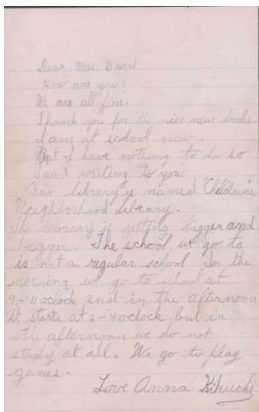 Dear Miss Breed
How are you?
We are all fine.
Thank you for the nice new books
I am at school now.
But I have nothing to do so
I am writing to you
Our library is named Children's
Neighborhood Library.
The library is getting bigger and
bigger. The school we go to
is not a regular school. In the
morning we go to school at
9-11 oclock and in the afternoon
it starts at 2-4 oclock but in
the afternoon we do not
study at all. We go to play
games.
Love Anna Kikuchi